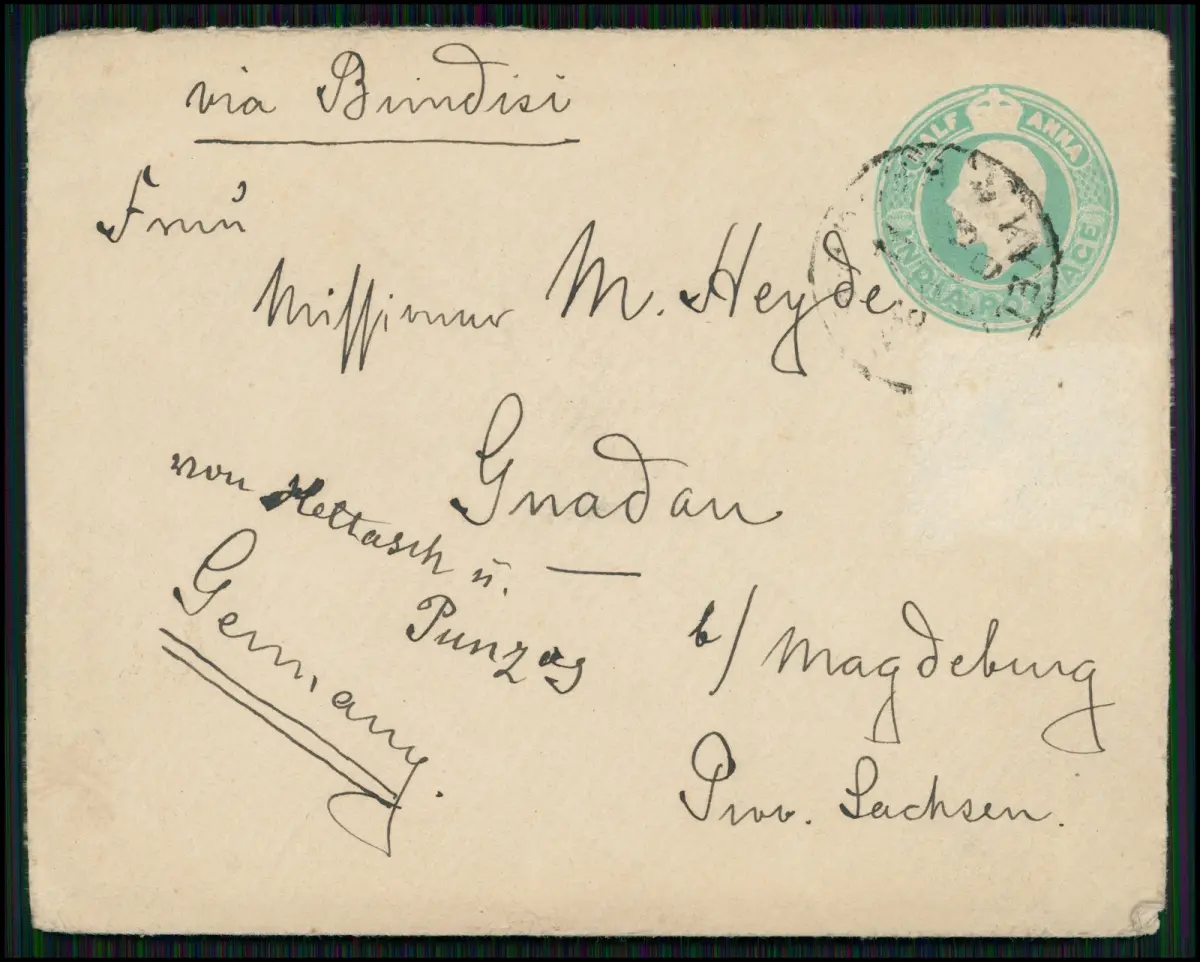 via Brindisi
HALF ANNA
INDIA POSTAGE
Frau
Missionar M. Heyde
Gnadau
von Hettasch u.
Punzos
Germany.
b/ Magdeburg
Prov. Sachsen.